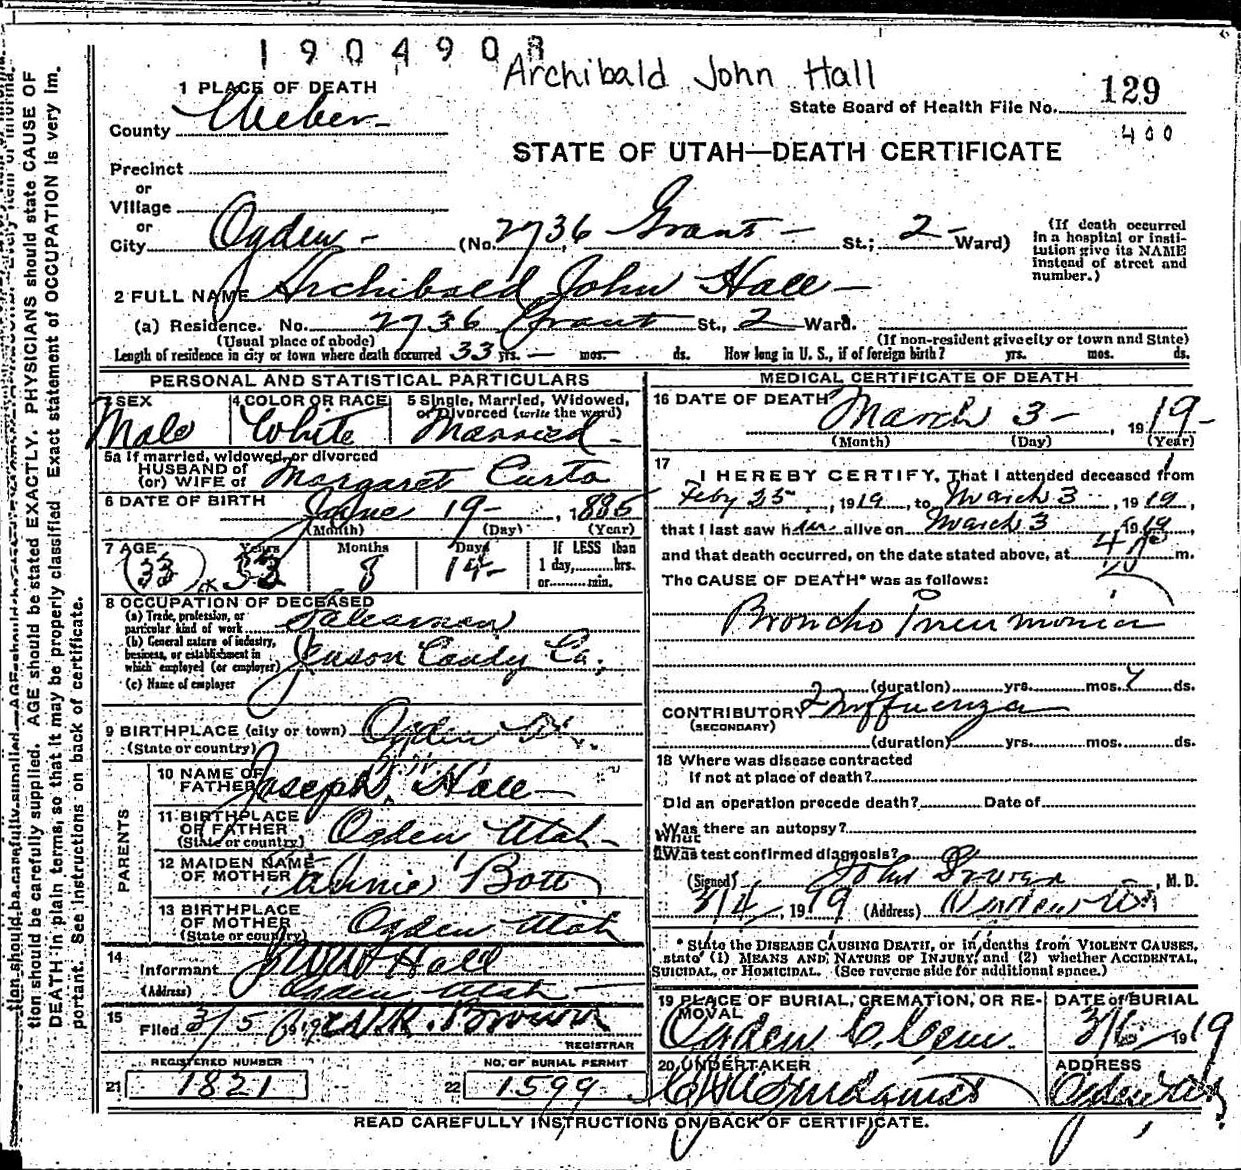 1904908
Archibald John Hall
1 PLACE OF DEATH
129
State Board of Health File No.
400
County Weber
STATE OF UTAH—DEATH CERTIFICATE
Precinct
or
Village
or
City Ogden (No. 2736 Grant St.; 2 Ward)
(If death occurred in a hospital or insti-
tution give its NAME
instead of street and
number.)
2 FULL NAME Archibald John Hall
(a) Residence. No. 2736 Grant St., 2 Ward.
(Usual place of abode) (If non-resident give city or town and State)
Length of residence in city or town where death occurred 33 yrs. mos. ds. How long in U. S., if of foreign birth? yrs. mos. ds.
PERSONAL AND STATISTICAL PARTICULARS
3 SEX
Male
4 COLOR OR RACE
White
5 Single, Married, Widowed,
or Divorced (write the word)
Married
5a If married, widowed, or divorced
HUSBAND of
(or) WIFE of Margaret
6 DATE OF BIRTH
June 19 , 1885
(Month) (Day) (Year)
7 AGE Years Months Days If LESS than
33 8 14 1 day, hrs.
or min.
8 OCCUPATION OF DECEASED
(a) Trade, profession, or
particular kind of work Salesman
(b) General nature of industry,
business, or establishment in
which employed (or employer) Candy Co.
(c) Name of employer
9 BIRTHPLACE (city or town) Ogden
(State or country)
PARENTS
10 NAME OF
FATHER Joseph Hall
11 BIRTHPLACE
OF FATHER Ogden Utah
(State or country)
12 MAIDEN NAME
OF MOTHER Bott
13 BIRTHPLACE
OF MOTHER Ogden Utah
(State or country)
14
Informant Hall
(Address) Ogden Utah
15
Filed 3/5 1919 Brown
REGISTRAR
REGISTERED NUMBER NO. OF BURIAL PERMIT
21 1821 22 1599
MEDICAL CERTIFICATE OF DEATH
16 DATE OF DEATH
March 3 , 1919
(Month) (Day) (Year)
17
I HEREBY CERTIFY, That I attended deceased from
Feby 25 , 1919 , to March 3 , 1919 ,
that I last saw him alive on March 3 , 1919 ,
and that death occurred, on the date stated above, at m.
The CAUSE OF DEATH* was as follows:
Broncho Pneumonia
(duration) yrs. mos. 7 ds.
CONTRIBUTORY Influenza
(SECONDARY)
(duration) yrs. mos. ds.
18 Where was disease contracted
if not at place of death?
Did an operation precede death? Date of
Was there an autopsy?
What test confirmed diagnosis?
(Signed) John , M. D.
3/4 , 1919 (Address)
* State the DISEASE CAUSING DEATH, or in deaths from VIOLENT CAUSES,
state (1) MEANS AND NATURE OF INJURY, and (2) whether ACCIDENTAL,
SUICIDAL, or HOMICIDAL. (See reverse side for additional space.)
19 PLACE OF BURIAL, CREMATION, OR RE-
MOVAL
Ogden C. Cem.
DATE of BURIAL
3/6 1919
20 UNDERTAKER
Lindquist
ADDRESS
Ogden Utah
READ CAREFULLY INSTRUCTIONS ON BACK OF CERTIFICATE.
tion should be carefully supplied. AGE should be stated EXACTLY. PHYSICIANS should state CAUSE OF
DEATH in plain terms, so that it may be properly classified. Exact statement of OCCUPATION is very im-
portant. See instructions on back of certificate.